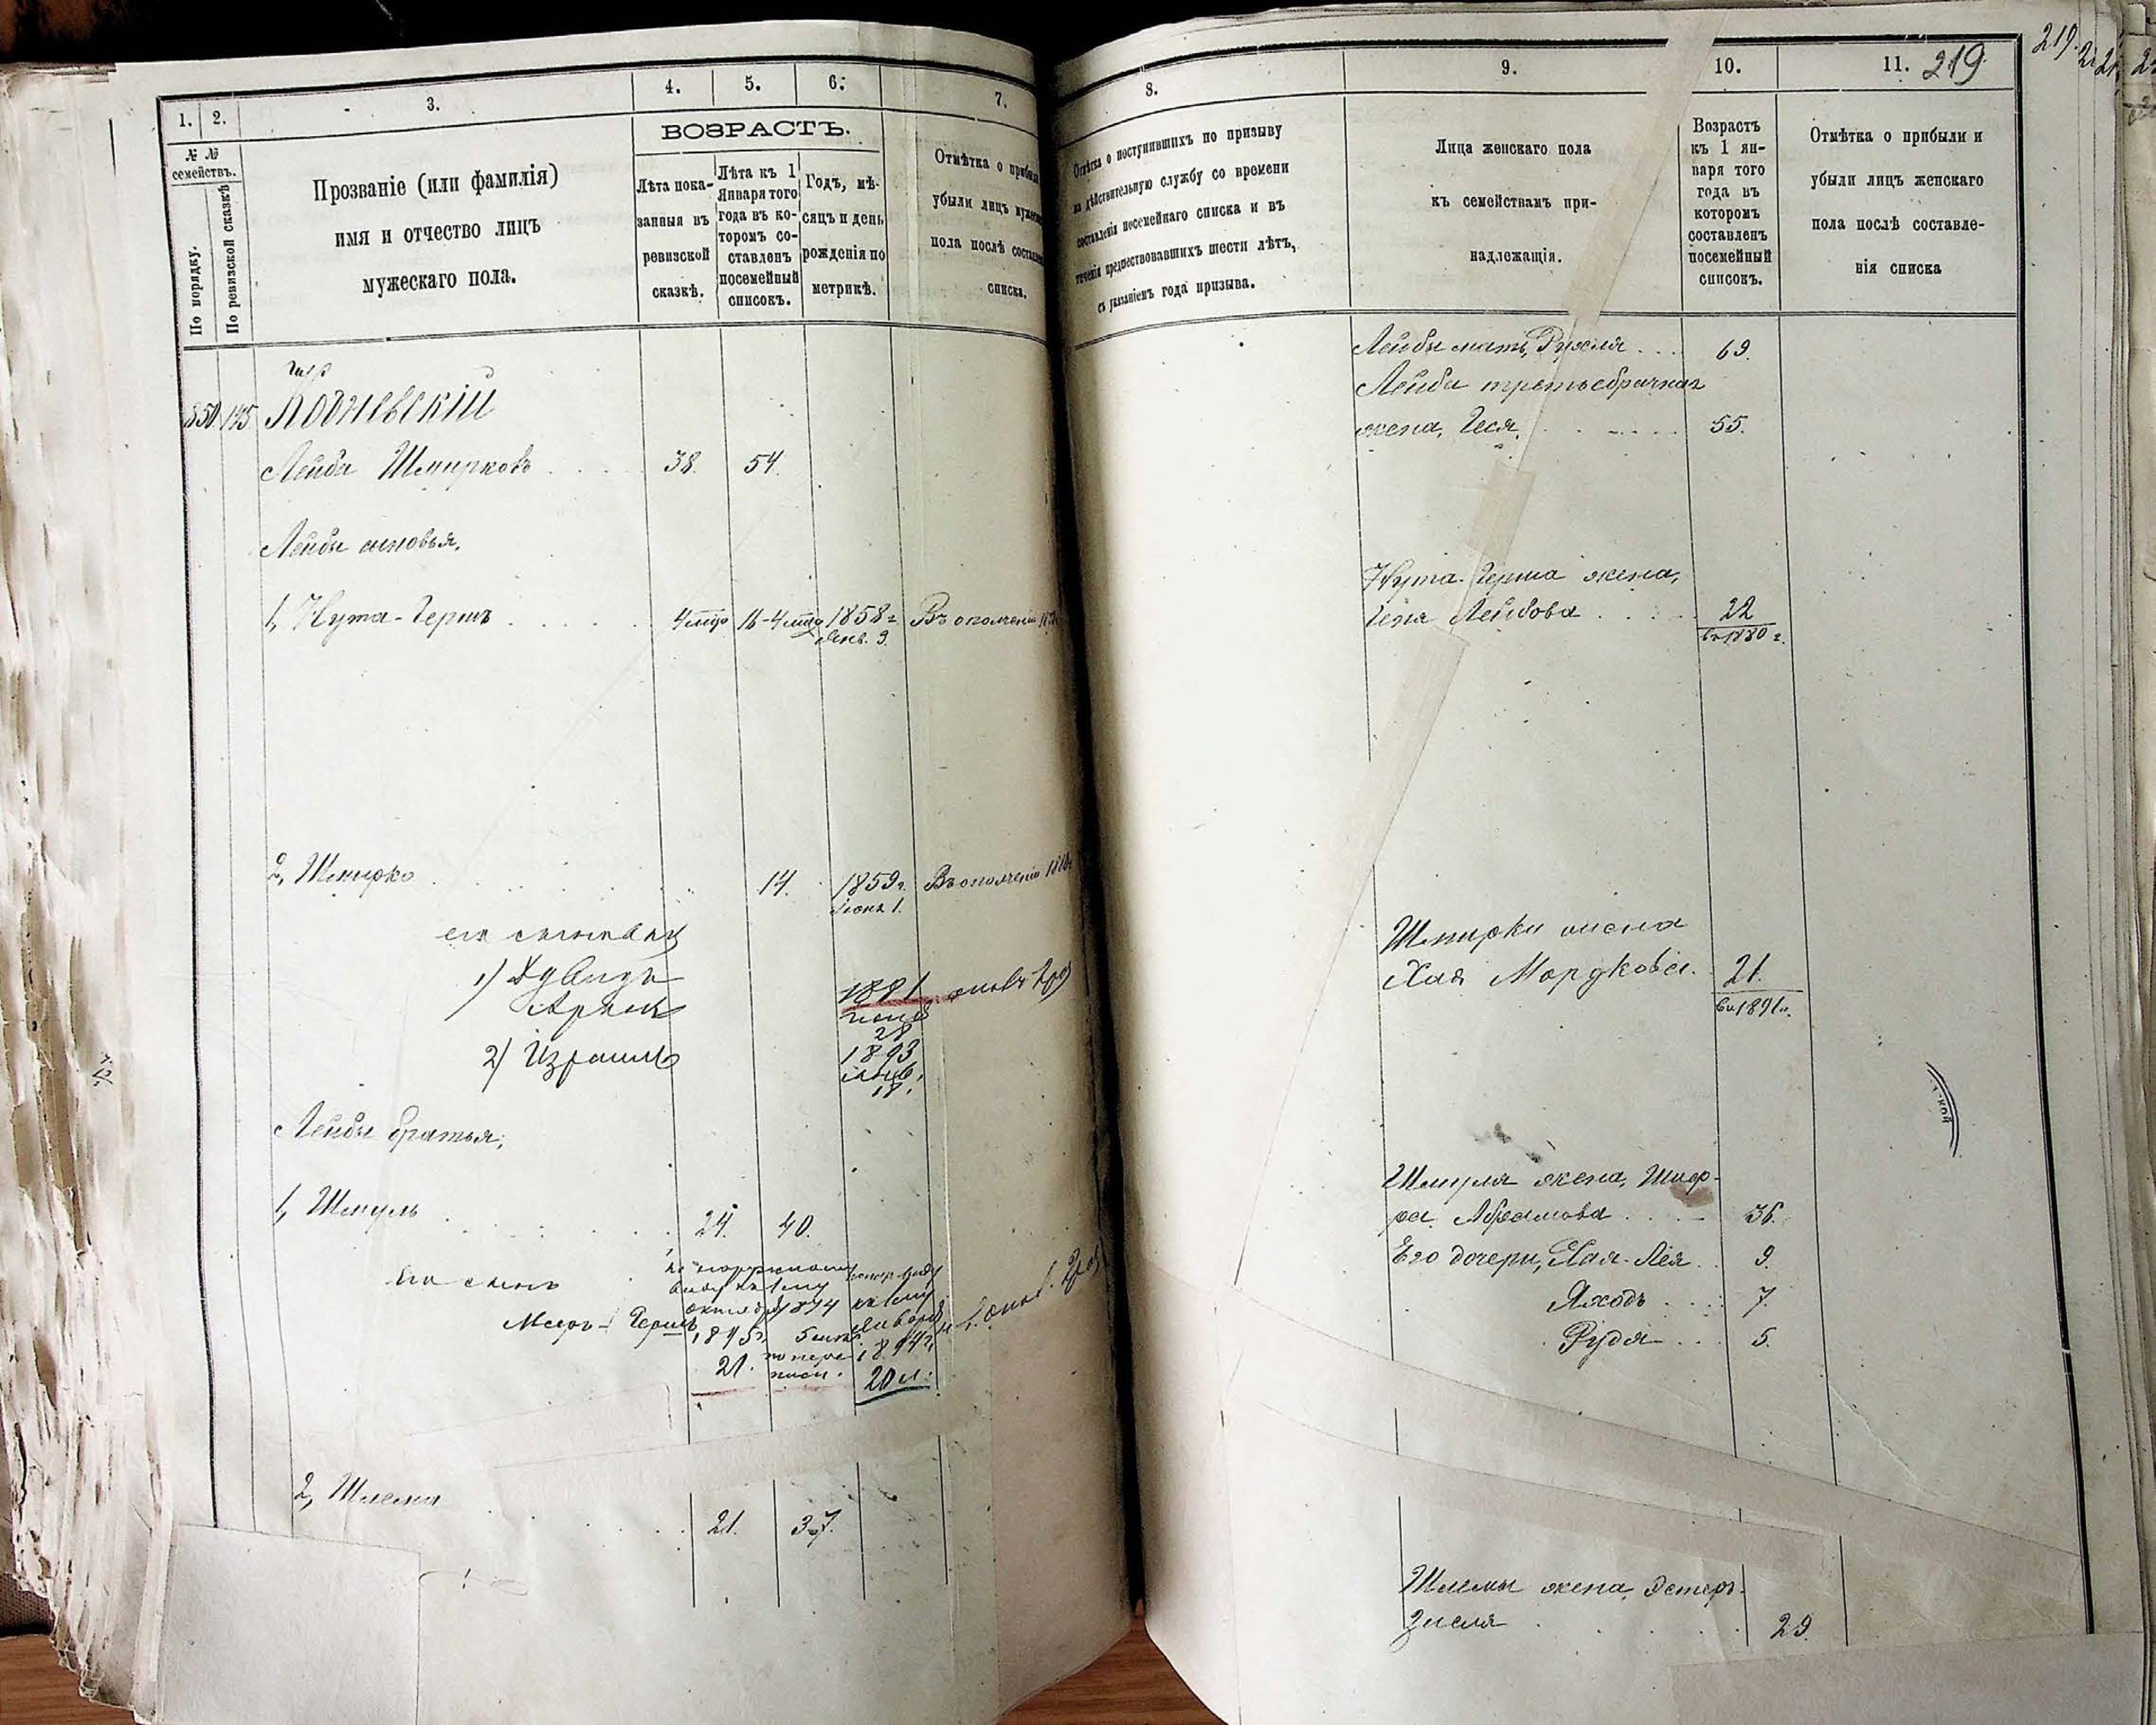 1. 2. 3. 4. 5. 6. 7.
№ № семействъ.
По порядку.
По ревизской сказкѣ.
Прозваніе (или фамилія)
имя и отчество лицъ
мужескаго пола.
ВОЗРАСТЪ.
Лѣта пока-
занныя въ
ревизской
сказкѣ.
Лѣта къ 1
Января того
года въ ко-
торомъ со-
ставленъ
посемейный
списокъ.
Годъ, мѣ-
сяцъ и день
рожденія по
метрикѣ.
Отмѣтка о прибыли
убыли лицъ мужес
пола послѣ составле
списка.
850. 145.
Лейба Шмирковъ 38. 54.
Лейбы сыновья,
1, Нута-Гершъ 16 1858 г. Въ ополченіи
Янв. 9.
2, Шмирко 14. 1859 г. Въ ополченіи
Іюня 1.
его сыновья
1) Давидъ
Аронъ 1891
28
2) Израиль 1893
18.
Лейбы братья,
1, Шмуль 24. 40.
его сынъ
Мееръ-Гершъ
21. 20 л.
2, Шлема 21. 37.
8. 9. 10. 11. 219
219.
Отмѣтка о поступившихъ по призыву
на дѣйствительную службу со времени
составленія посемейнаго списка и въ
теченіи предшествовавшихъ шести лѣтъ,
съ указаніемъ года призыва.
Лица женскаго пола
къ семействамъ при-
надлежащія.
Возрастъ
къ 1 ян-
варя того
года въ
которомъ
составленъ
посемейный
списокъ.
Отмѣтка о прибыли и
убыли лицъ женскаго
пола послѣ составле-
нія списка
Лейбы мать, Рухля 69.
Лейбы третьебрачная
жена, Геся 55.
Нута-Герша жена,
Геня Лейбова 22
въ 1880 г.
Шмирки жена
Хая Мордкова 21.
въ 1891 г.
Шмуля жена, Шиф-
ра Абрамова 36.
Его дочери, Хая-Лея 9.
7.
5.
Шлемы жена, Эстеръ-
Зисля 29.